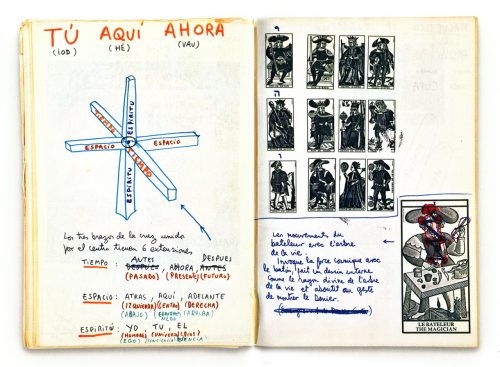 TÚ AQUÍ AHORA
(IOD) (HÉ) (VAU)
ESPIRITU
TIEMPO
ESPACIO
ESPACIO
TIEMPO
ESPIRITU
Los tres brazos de la cruz unida
por el centro tienen 6 extensiones
ANTES DESPUES
TIEMPO : DESPUES, AHORA, ANTES
(PASADO) (PRESENTE) (FUTURO)
ESPACIO: ATRAS, AQUÍ, ADELANTE
(IZQUIERDA) (CENTRO) (DERECHA)
(ABAJO) (ARRIBA)
ESPIRITU: YO, TU, EL
(HOMBRE) (UNIVERSO) (DIOS)
(EGO)
י
ה
ו
Les mouvements du
bateleur avec l'arbre
de la vie:
Invoque la force cosmique avec
le bâton, fait un denier interne
comme le rayon divine de l'arbre
de la vie et aboutit au geste
de montrer le Denier.
LE BATELEUR
THE MAGICIAN